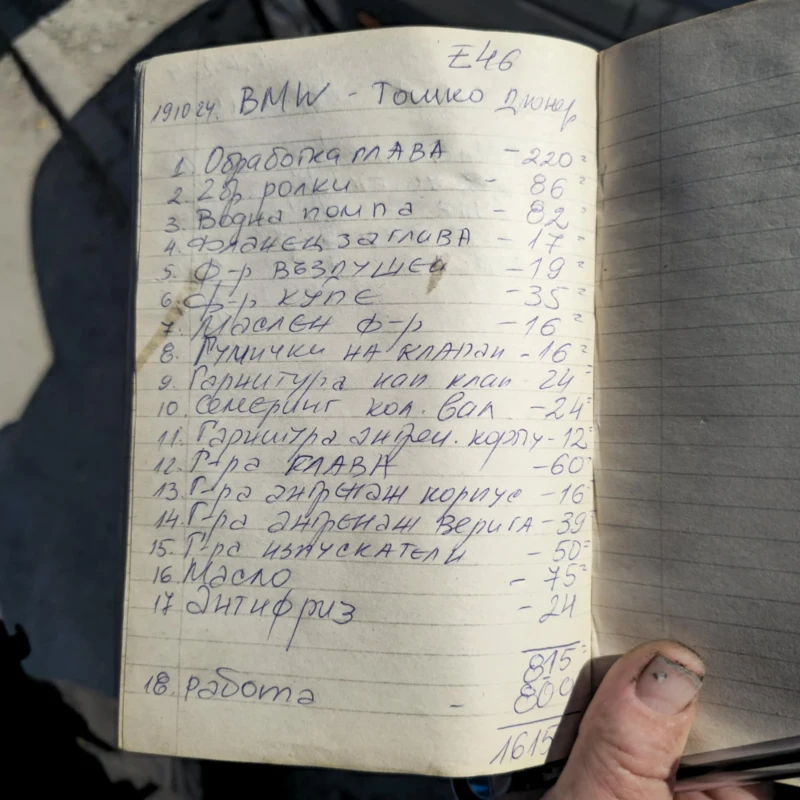 E46
191024. BMW - Тошко Дюнер
1. Обработка глава - 220=
2. 2бр ролки - 86=
3. Водна помпа - 82=
4. Фланец заглива - 17=
5. ф-р въздушен - 19=
6. ф-р купе - 35=
7. Маслен ф-р - 16=
8. Гумички на клапан - 16=
9. Гарнитура кап клап - 24=
10. Семеринг кол. вал - 24=
11. Гарнитра ангрен. корпу - 12=
12. Г-ра глава - 60=
13. Г-ра ангренаж корпус - 16=
14. Г-ра ангренаж верига - 39=
15. Г-ра изпускатели - 50=
16 Масло - 75=
17 Антифриз - 24
815=
18. работа - 800
1615